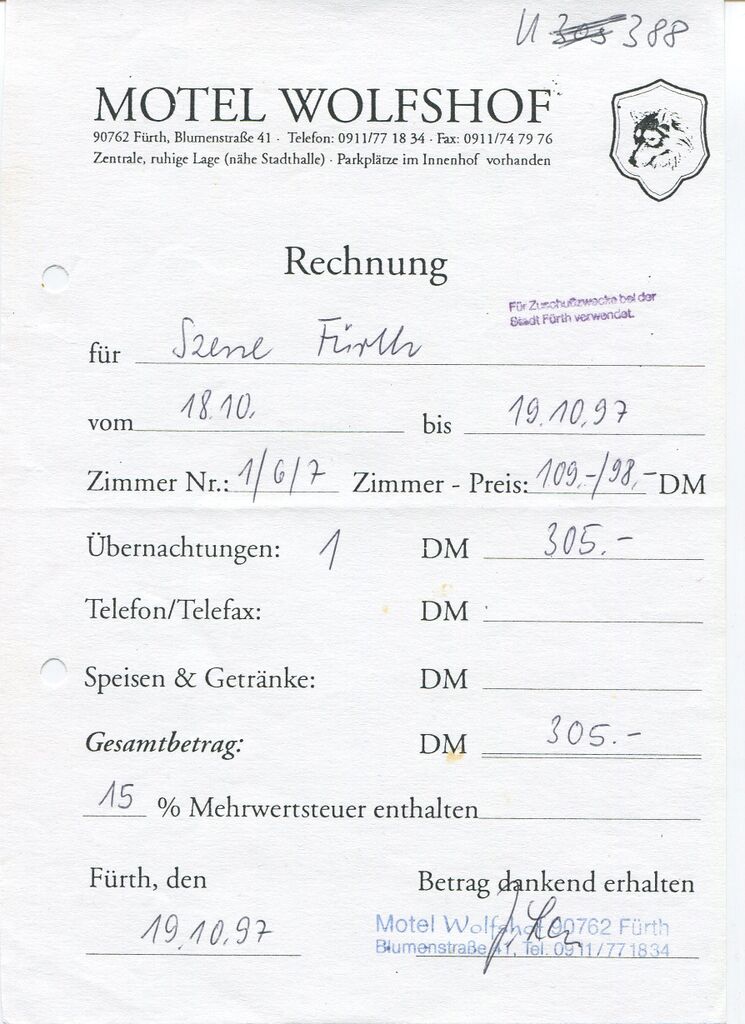 U 303 388
MOTEL WOLFSHOF
90762 Fürth, Blumenstraße 41 · Telefon: 0911/77 18 34 · Fax: 0911/74 79 76
Zentrale, ruhige Lage (nähe Stadthalle) · Parkplätze im Innenhof vorhanden
Rechnung
Für Zuschußzwecke bei der
Stadt Fürth verwendet.
für Szene Fürth
vom 18.10. bis 19.10.97
Zimmer Nr.: 1/6/7 Zimmer - Preis: 109,-/98,- DM
Übernachtungen: 1 DM 305.-
Telefon/Telefax: DM
Speisen & Getränke: DM
Gesamtbetrag: DM 305.-
15 % Mehrwertsteuer enthalten
Fürth, den Betrag dankend erhalten
19.10.97
Motel Wolfshof 90762 Fürth
Blumenstraße 41, Tel. 0911/771834